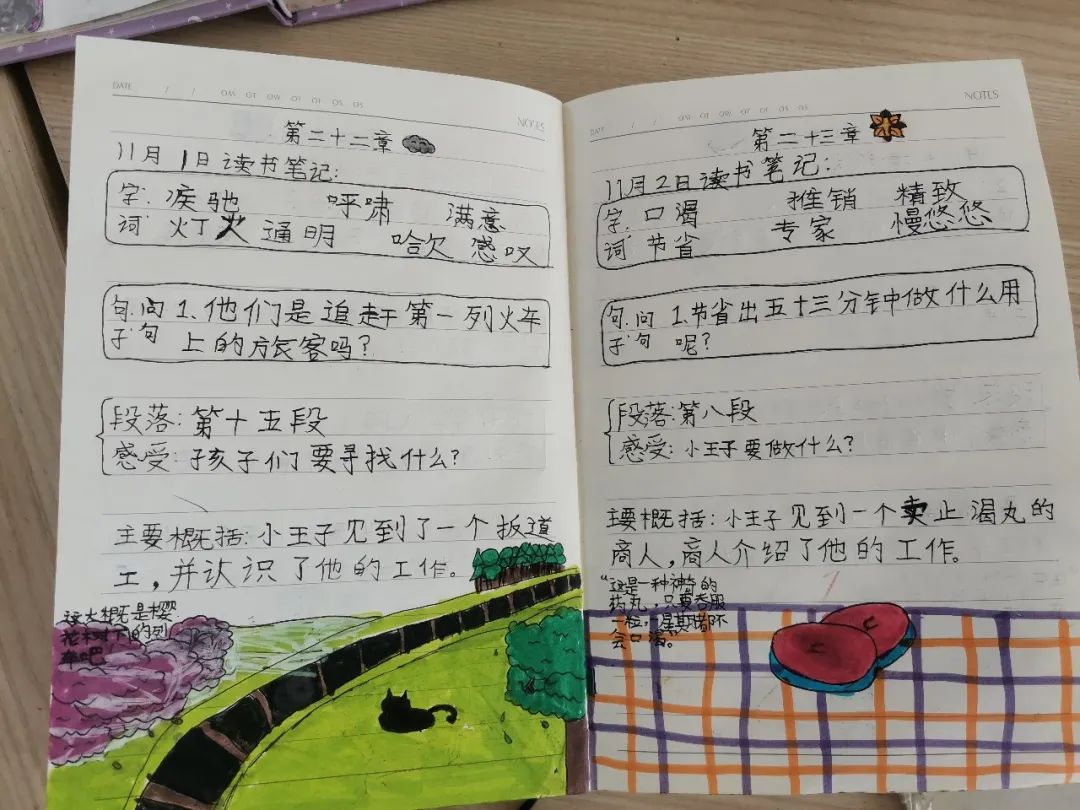 DATE / / NOTES
第二十二章
11月1日读书笔记:
字: 疾驰 呼啸 满意
词 灯火通明 哈欠 感叹
句.问 1.他们是追赶第一列火车
子 句 上的旅客吗?
段落:第十五段
感受:孩子们要寻找什么?
主要概括:小王子见到了一个扳道
工,并认识了他的工作。
这大概是樱
花树下的列
车吧
DATE / / NOTES
第二十三章
11月2日读书笔记:
字. 口渴 推销 精致
词 节省 专家 慢悠悠
句.问 1.节省出五十三分钟中做什么用
子 句 呢?
段落:第八段
感受:小王子要做什么?
主要概括:小王子见到一个卖止渴丸的
商人,商人介绍了他的工作。
“这是一种神奇的
药丸,只要吞服
一粒,一星期都不
会口渴。”